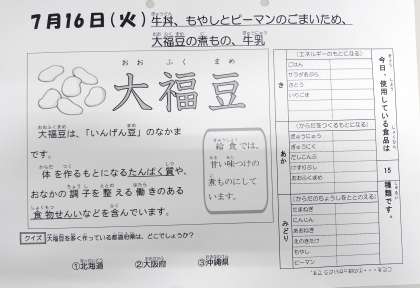 7月16日(火)牛丼、もやしとピーマンのごまいため、
大福豆の煮もの、牛乳
おおふくまめ
大福豆
大福豆は、「いんげん豆」のなかま
です。
体を作るもとになるたんぱく質や、
おなかの調子を整える働きのある
食物せんいなどを含んでいます。
給食では、
甘い味つけの
煮ものにして
います。
クイズ 大福豆を多く作っている都道府県は、どこでしょうか?
①北海道 ②大阪府 ③沖縄県
き
(エネルギーのもとになる)
ごはん
サラダあぶら
さとう
いりごま
あか
(からだをつくるもとになる)
ぎゅうにゅう
ぎゅうにく
だしこんぶ
けずりぶし
おおふくまめ
みどり
(からだのちょうしをととのえる)
たまねぎ
にんじん
あおねぎ
えのきたけ
もやし
ピーマン
今日、使用している食品は
15
種類です。